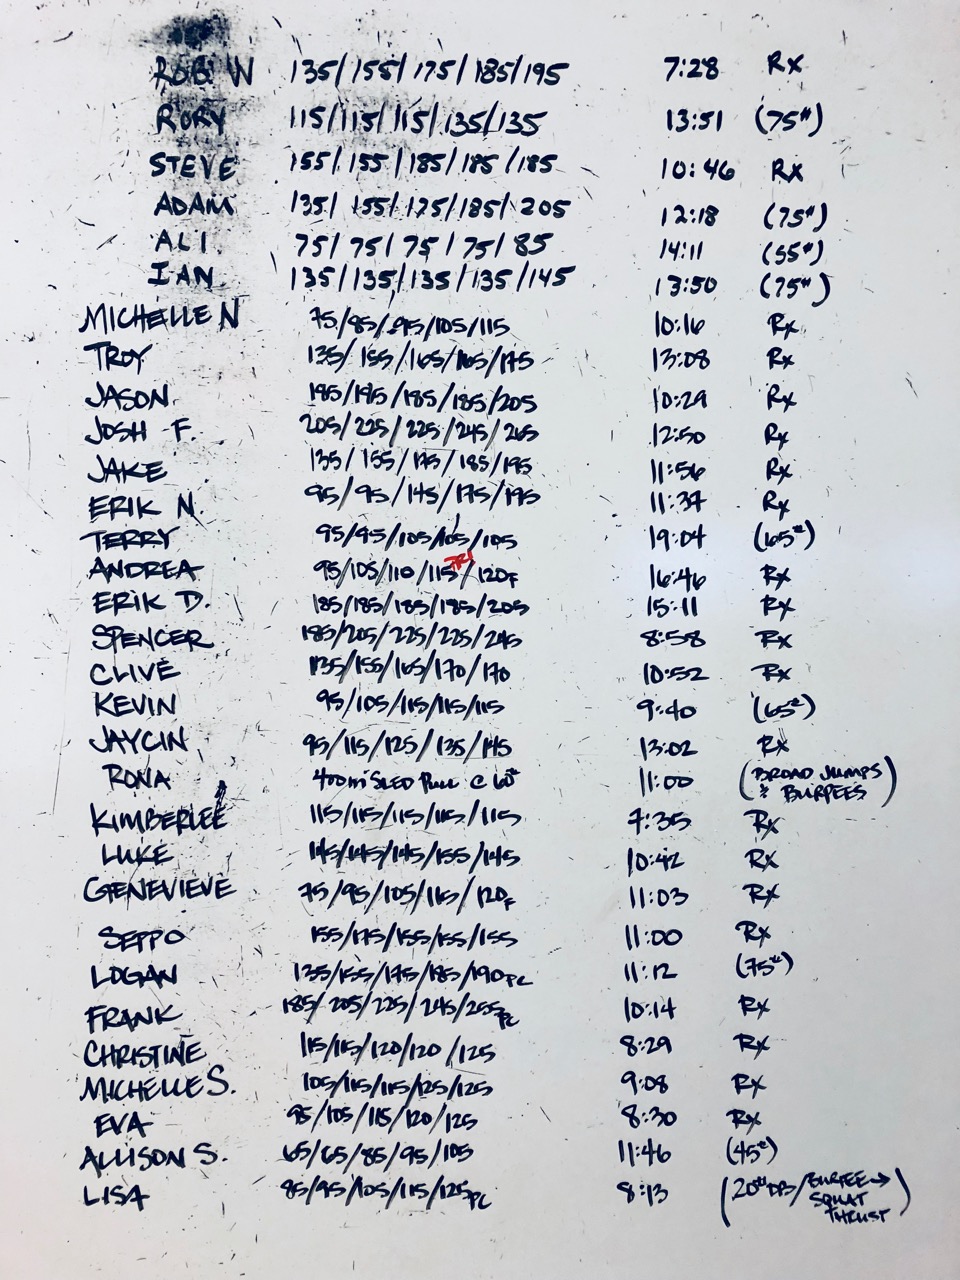 ROB W 135/155/175/185/195 7:28 Rx
RORY 115/115/115/135/135 13:51 (75#)
STEVE 155/155/185/185/185 10:46 Rx
ADAM 135/155/175/185/205 12:18 (75#)
ALI 75/75/75/75/85 14:11 (55#)
IAN 135/135/135/135/145 13:50 (75#)
MICHELLE N 75/85/95/105/115 10:16 Rx
TROY 135/155/165/165/175 13:08 Rx
JASON 185/195/185/185/205 10:29 Rx
JOSH F. 205/225/225/245/265 12:50 Rx
JAKE 135/155/175/185/195 11:56 Rx
ERIK N. 95/95/145/175/195 11:37 Rx
TERRY 95/95/105/105/105 19:04 (65#)
ANDREA 95/105/110/115/120F 16:46 Rx
ERIK D. 185/185/185/185/205 15:11 Rx
SPENCER 185/205/225/225/245 8:58 Rx
CLIVE 135/155/165/170/170 10:52 Rx
KEVIN 95/105/115/115/115 9:40 (65#)
JAYCIN 95/115/125/135/145 13:02 Rx
RONA 400m SLED PULL @ 60# 11:00 (BROAD JUMPS
& BURPEES)
KIMBERLEE 115/115/115/115/115 7:35 Rx
LUKE 145/145/145/155/145 10:42 Rx
GENEVIEVE 75/95/105/115/120F 11:03 Rx
SEPPO 155/175/155/155/155 11:00 Rx
LOGAN 135/155/175/185/190PC 11:12 (75#)
FRANK 185/205/225/245/255PC 10:14 Rx
CHRISTINE 115/115/120/120/125 8:29 Rx
MICHELLE S. 105/115/115/125/125 9:08 Rx
EVA 95/105/115/120/125 8:30 Rx
ALLISON S. 65/65/85/95/105 11:46 (45#)
LISA 85/95/105/115/125PC 8:13 (20# DB/BURPEE→
SQUAT
THRUST)